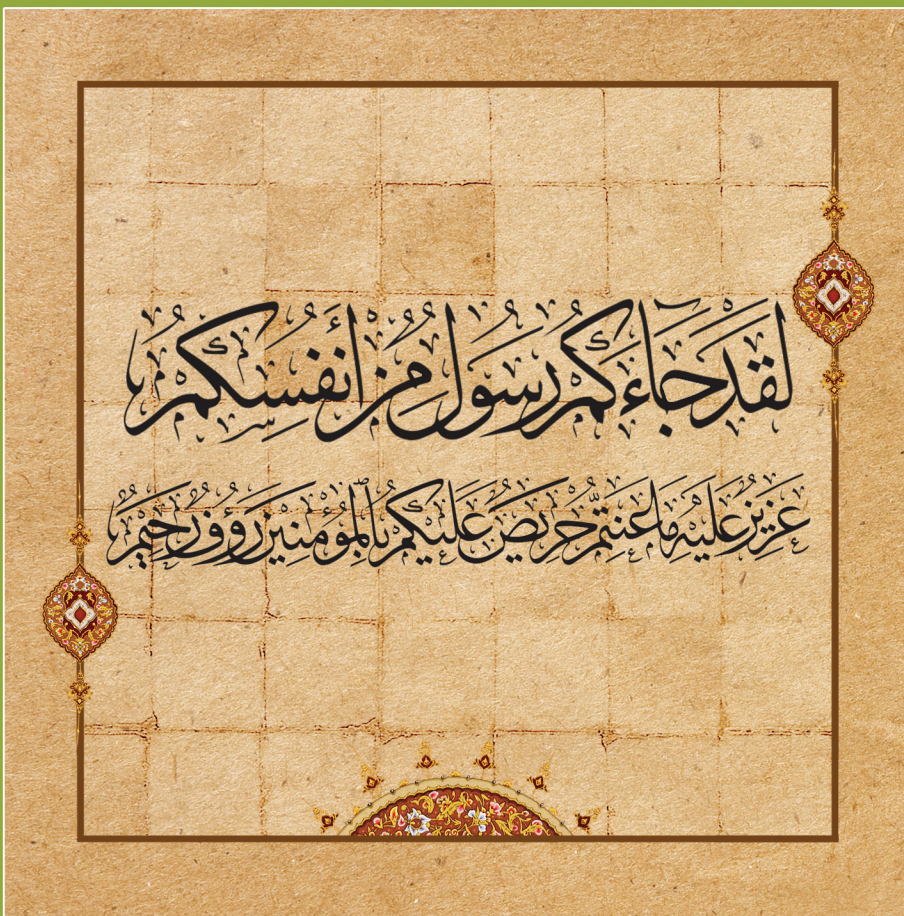 لَقَدْ جَآءَكُمْ رَسُولٌ مِّنْ أَنفُسِكُمْ
عَزِيزٌ عَلَيْهِ مَا عَنِتُّمْ حَرِيصٌ عَلَيْكُم بِالْمُؤْمِنِينَ رَؤُوفٌ رَّحِيمٌ